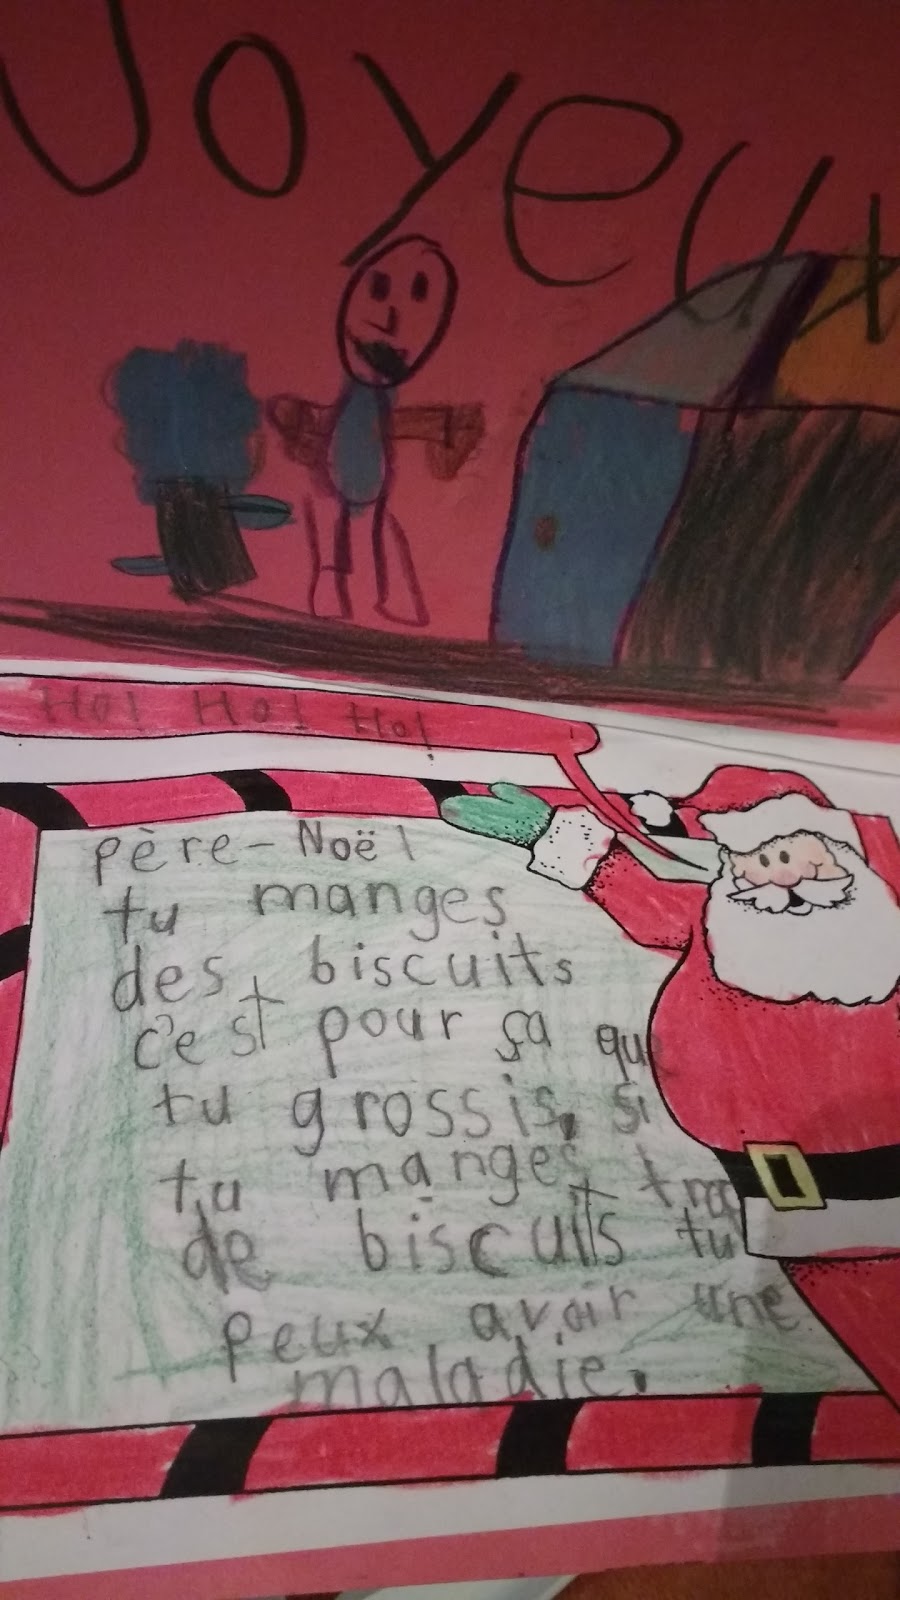 Joyeux
Ho! Ho! Ho!
père-Noël
tu manges
des biscuits
c'est pour ça que
tu grossis, si
tu manges trop
de biscuits tu
peux avoir une
maladie.